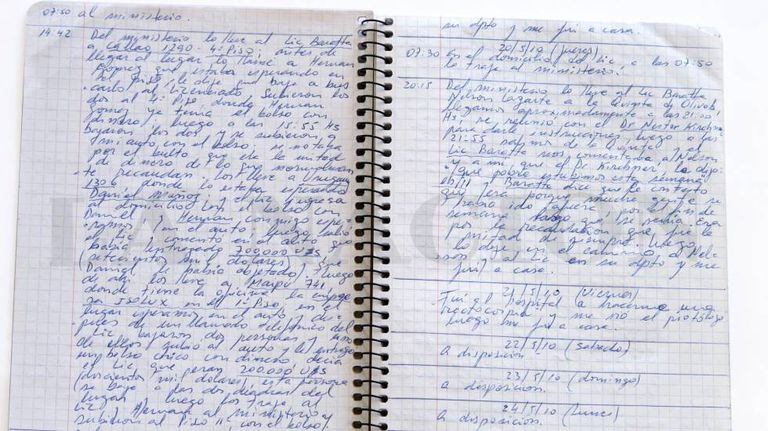 07:50 al ministerio.
14:42 Del ministerio lo lleve al Lic Baratta
a Callao 1290 - 4º Piso; antes de
llegar al lugar lo llame a Hernan
Gomez que estaba esperando en
el Piso y le dije que baje a bus
carlo al Licenciado. Subieron los
dos al 4º Piso donde Hernan
Gomez ya tenia el bolso con
dinero y luego a las 15:55 Hs
bajaron los dos y se subieron a
mi auto con el bolso, se notaba
por el bulto que era la mitad
de dinero de lo que
recaudan. Los lleve a Uruguay
1306 donde lo estaba esperando
Daniel Muñoz, el Lic y ingresa
al domicilio con el bolso con
Daniel y Hernan, conmigo espe
ramos en el auto, luego salio
el Lic y comento en el auto que
habia entregado 700.000 U$S
(setecientos mil dolares), que
Daniel le habia objetado. Luego
de ahi los lleve a Maipu 741
donde tiene la oficina la empre
sa ISOLUX en el 1º Piso, en el
lugar esperamos en el auto y des
pues de un llamado telefonico del
Lic bajaron dos personas y uno
de ellos subio al auto y le entrego
un bolso chico con dinero decia
el Lic que eran 200.000 U$S
(doscientos mil dolares), esta persona
se bajo a las dos cuadras del
lugar y luego los traje al
Lic y Hernan al ministerio y
subieron al Piso 11º con el bolso.
su dpto y me fui a casa.
20/5/10 (jueves)
07:30 En el domicilio del Lic, a las 07:50
lo traje al ministerio.
20:15 Del ministerio lo lleve al Lic Baratta
y Nelson Lazarte a la Quinta de Olivos,
llegamos aproximadamente a las 21:00
Hs, se reunio con el Dr Nestor Kirchner
para darle instrucciones, luego a las
21:55 salimos de la Quinta. El
Lic Baratta nos comentaba a Nelson
y a mi, que el Dr Kirchner, le dijo:
"que pobre estuvimos esta semana
eh!!" y Baratta dice que le contesto
que era porque mucha gente se
habia ido afuera por el fin de
semana largo que se venia. Era
por la recaudacion que fue la
mitad de siempre. Luego
lo deje en el camino a Nel-
son y al Lic en su dpto y me
fui a casa.
21/5/10 (viernes)
Fui al hospital a hacerme una
rectoscopia y me vio el proctologo
luego me fui a casa.
22/5/10 (sabado)
a disposición
23/5/10 (domingo)
a disposición.
24/5/10 (lunes)
a disposición.
LA NACION